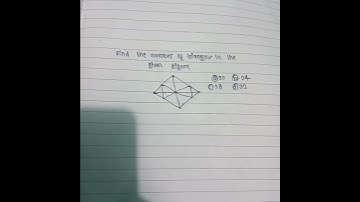 Find the number of triangles in the
given figure
Ⓐ 20 Ⓑ 24
Ⓒ 28 Ⓓ 32